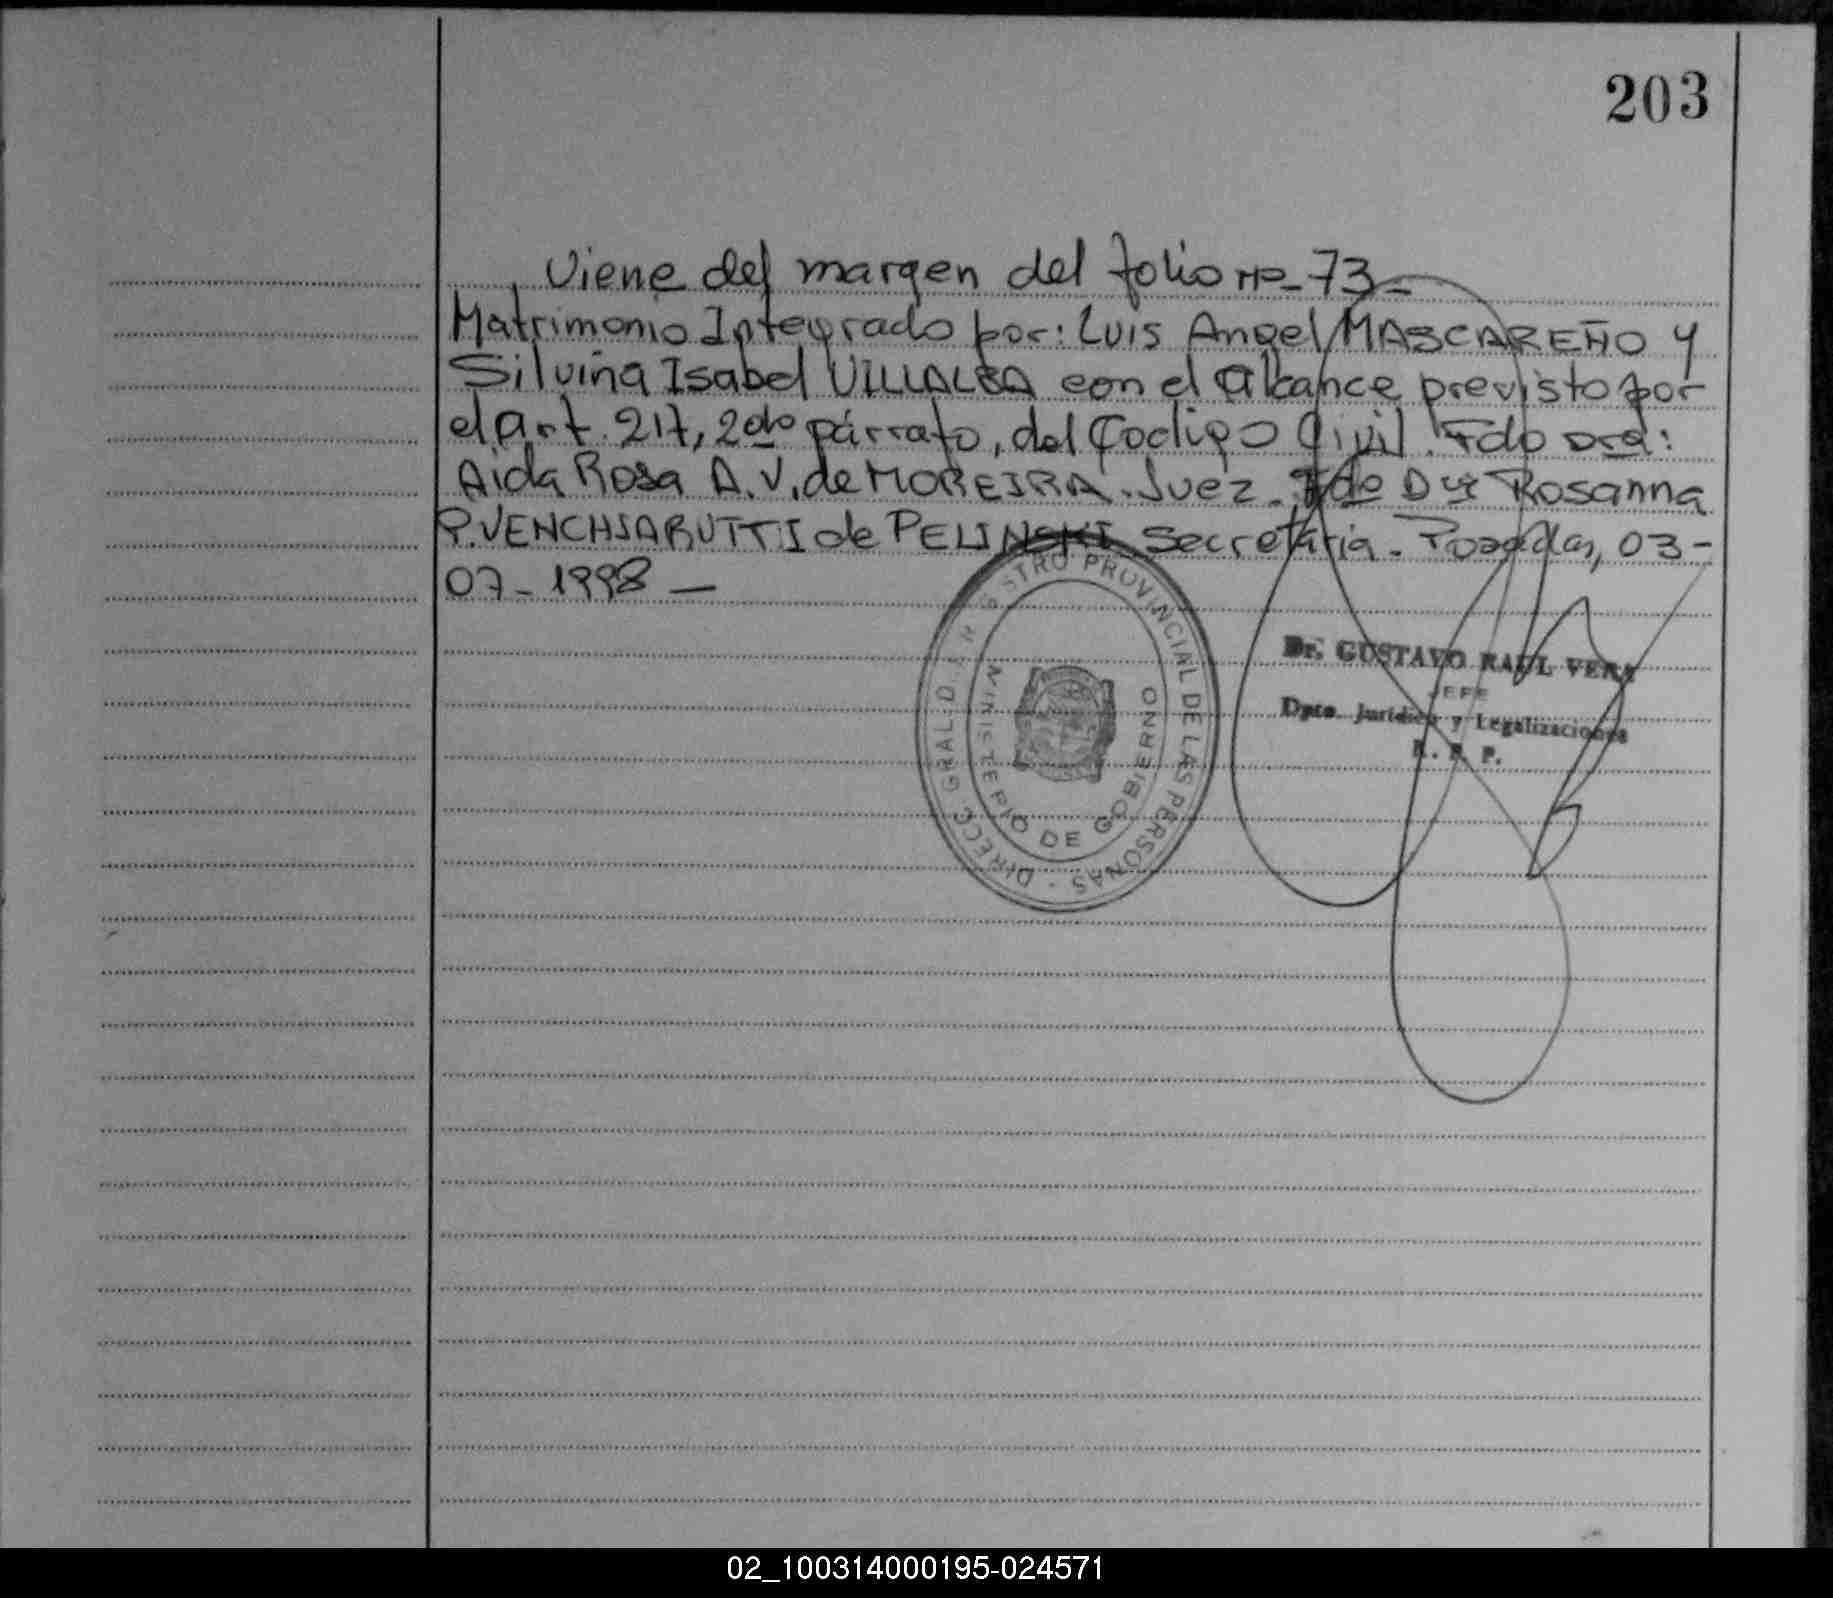 203
Viene del margen del folio Nº_73_
Matrimonio Integrado por: Luis Angel MASCAREÑO y
Silvina Isabel VILLALBA con el alcance previsto por
el art. 217, 2do párrafo, del Codigo Civil. Fdo Dra:
Aida Rosa A.V. de MOREIRA. Juez. Fdo Dra Rosanna
P. VENCHIARUTTI de PELINSKI Secretaria. Posadas, 03-
07-1998 —
DIRECC. GRAL. D PROVINCIAL DE LAS PERSONAS -
MINISTERIO DE GOBIERNO
Dr. GUSTAVO RAUL VERA
JEFE
Dpto. Jurídico y Legalizaciones
R. P. P.
02_100314000195-024571